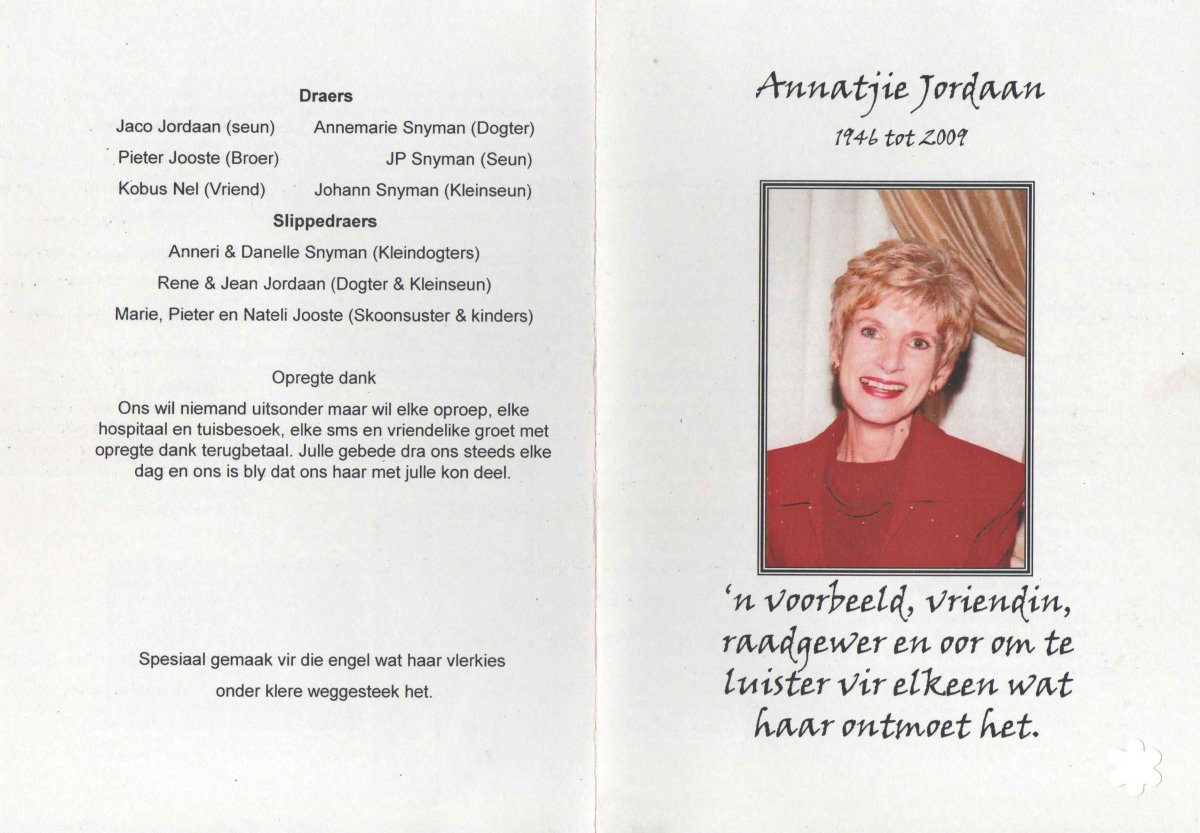 Draers
Jaco Jordaan (seun) Annemarie Snyman (Dogter)
Pieter Jooste (Broer) JP Snyman (Seun)
Kobus Nel (Vriend) Johann Snyman (Kleinseun)
Slippedraers
Anneri & Danelle Snyman (Kleindogters)
Rene & Jean Jordaan (Dogter & Kleinseun)
Marie, Pieter en Nateli Jooste (Skoonsuster & kinders)
Opregte dank
Ons wil niemand uitsonder maar wil elke oproep, elke
hospitaal en tuisbesoek, elke sms en vriendelike groet met
opregte dank terugbetaal. Julle gebede dra ons steeds elke
dag en ons is bly dat ons haar met julle kon deel.
Spesiaal gemaak vir die engel wat haar vlerkies
onder klere weggesteek het.
Annatjie Jordaan
1946 tot 2009
‘n voorbeeld, vriendin,
raadgewer en oor om te
luister vir elkeen wat
haar ontmoet het.